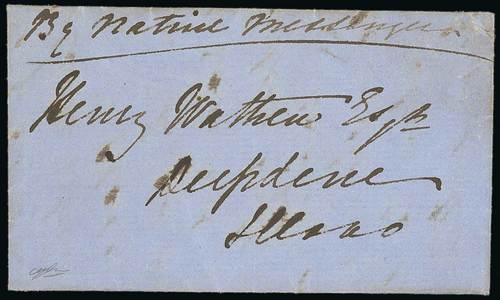 By Native Messenger
Henry Wathen Esqr
Deepdene